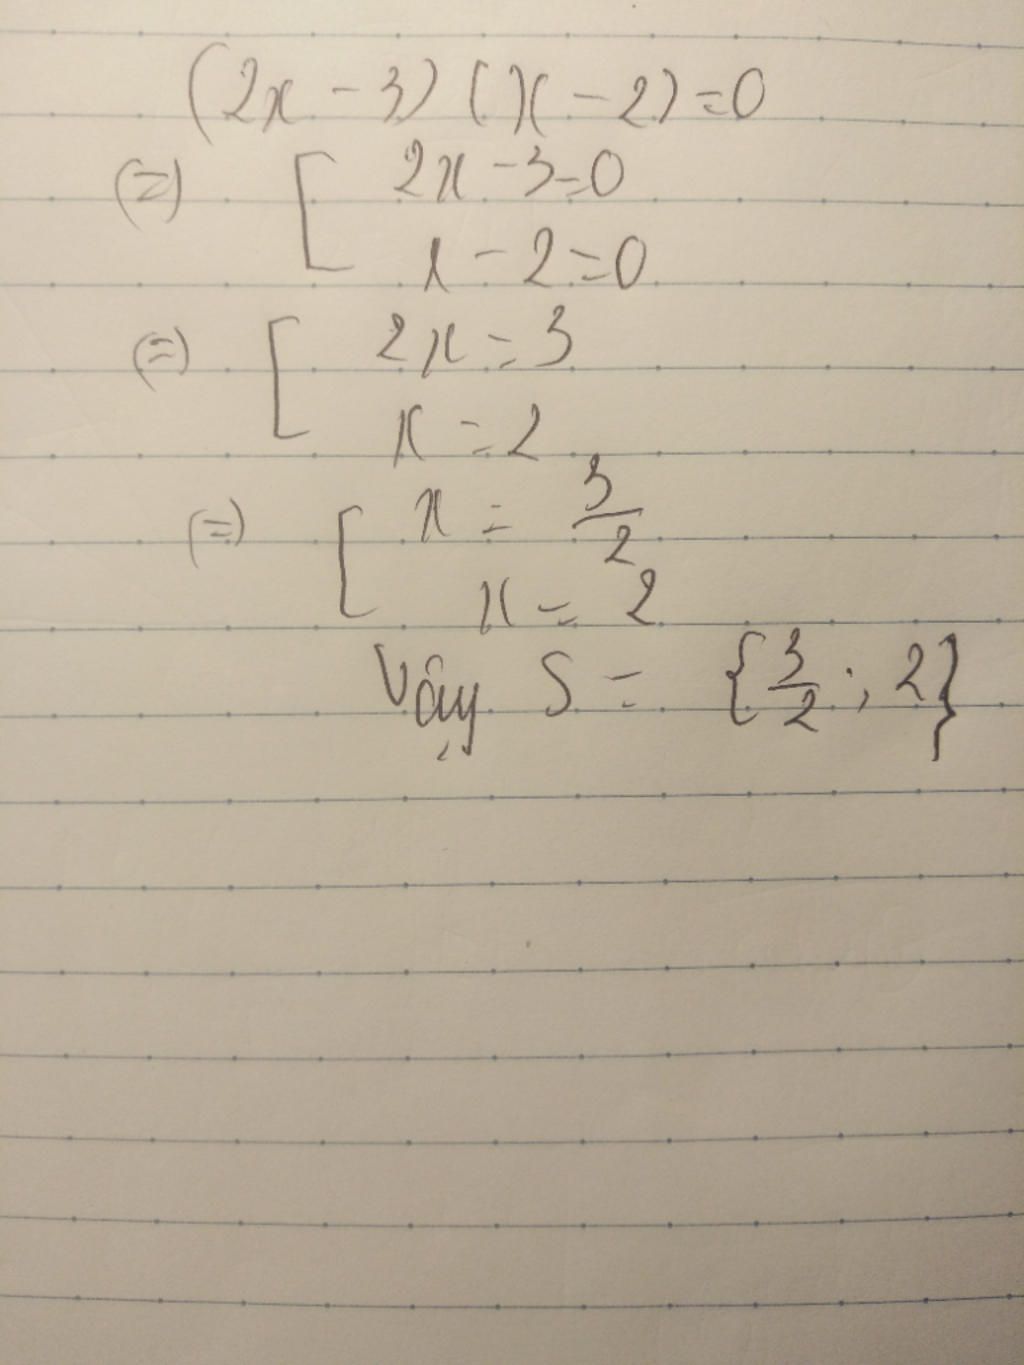 (2x - 3) (x - 2) = 0
(=) [ 2x - 3 = 0
x - 2 = 0
(=) [ 2x = 3
x = 2
(=) [ x = 3/2
x = 2
Vậy S = {3/2 ; 2}